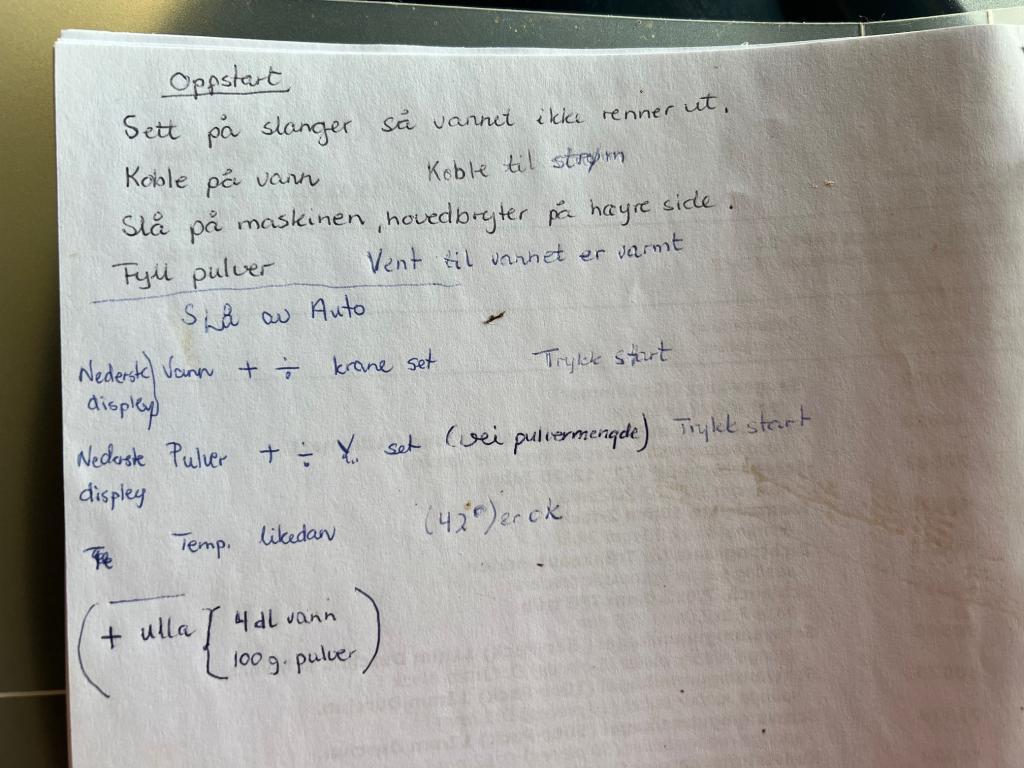 Oppstart
Sett på slanger så vannet ikke renner ut.
Koble på vann Koble til strøm
Slå på maskinen, hovedbryter på høyre side.
Fyll pulver Vent til vannet er varmt
Slå av Auto
Nederste display) Vann + ÷ krane set Trykk start
Nederste display Pulver + ÷ set (vei pulvermengde) Trykk start
Temp. likedan (42°) er ok
(+ ulla { 4 dl vann
100 g. pulver)